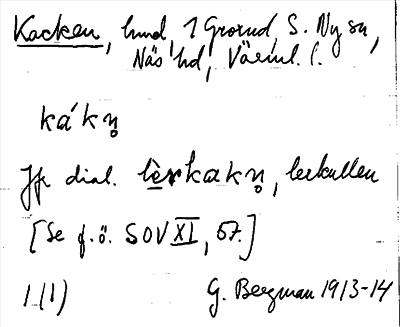 Kacken, lund, 1 Grosud, S. Ny sn,
Näs hd, Värml. l.
kákn̥
Jfr dial. lèrkakn̥, lerkullen
[Se f.ö. SOV XI, 57.]
1 (1) G. Bergman 1913-14